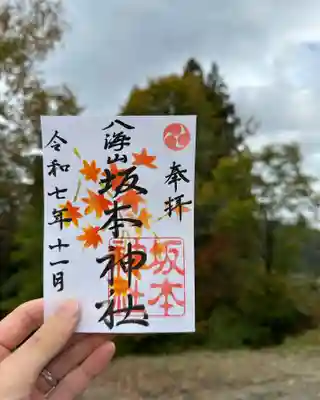 奉拝
八海山
坂本神社
坂本
神社
令和七年十一月